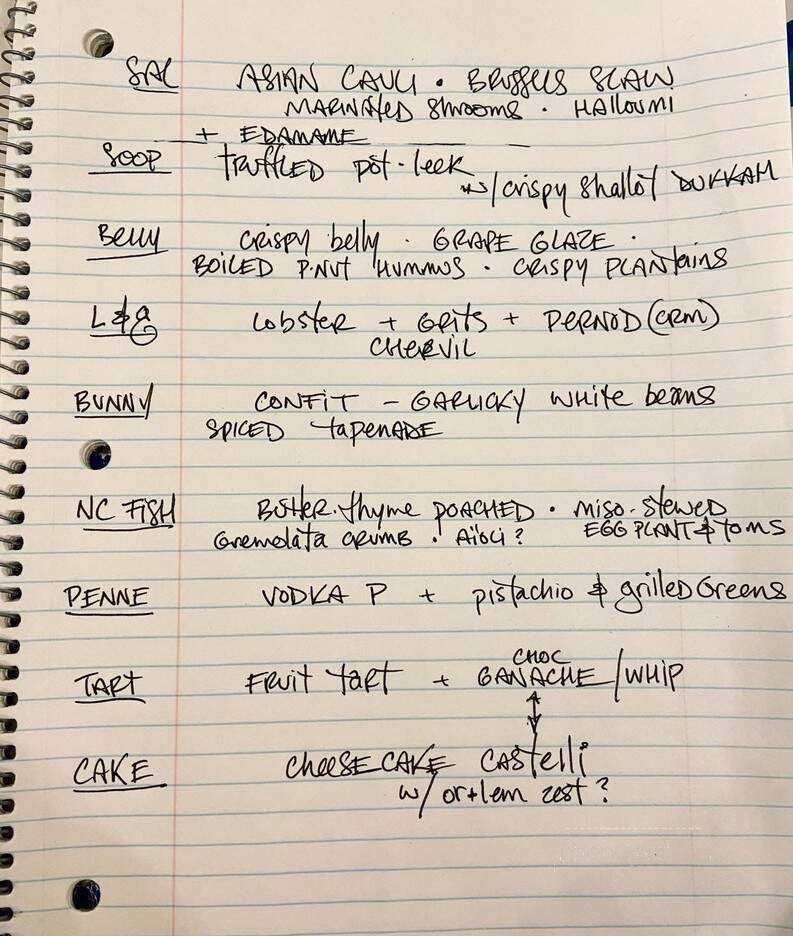 SAL ASIAN CAULI · BRUSSELS SLAW
MARINATED Shrooms · HALLOUMI
+ EDAMAME
SOOP TRUFFLED pot-leek
w/crispy shallot DUKKAH
Belly CRISPY belly · GRAPE GLAZE ·
BOILED P.NUT HUMMUS · CRISPY PLANtains
L & G LObSTER + GRITS + PERNOD (CRM)
CHERVIL
BUNNY CONFIT – GARLICKY WHITE beans
SPICED tapENADE
NC FISH BUTTER.thyme POACHED · MISO-STEWED
Gremolata CRUMB · Aïoli? EGG PLANT & TOMS
PENNE VODKA P + pistachio & grilled Greens
TART FRUIT TART + CHOC GANACHE/WHIP
CAKE CheeSE CAKE CAStelli
w/ or+lem zest?